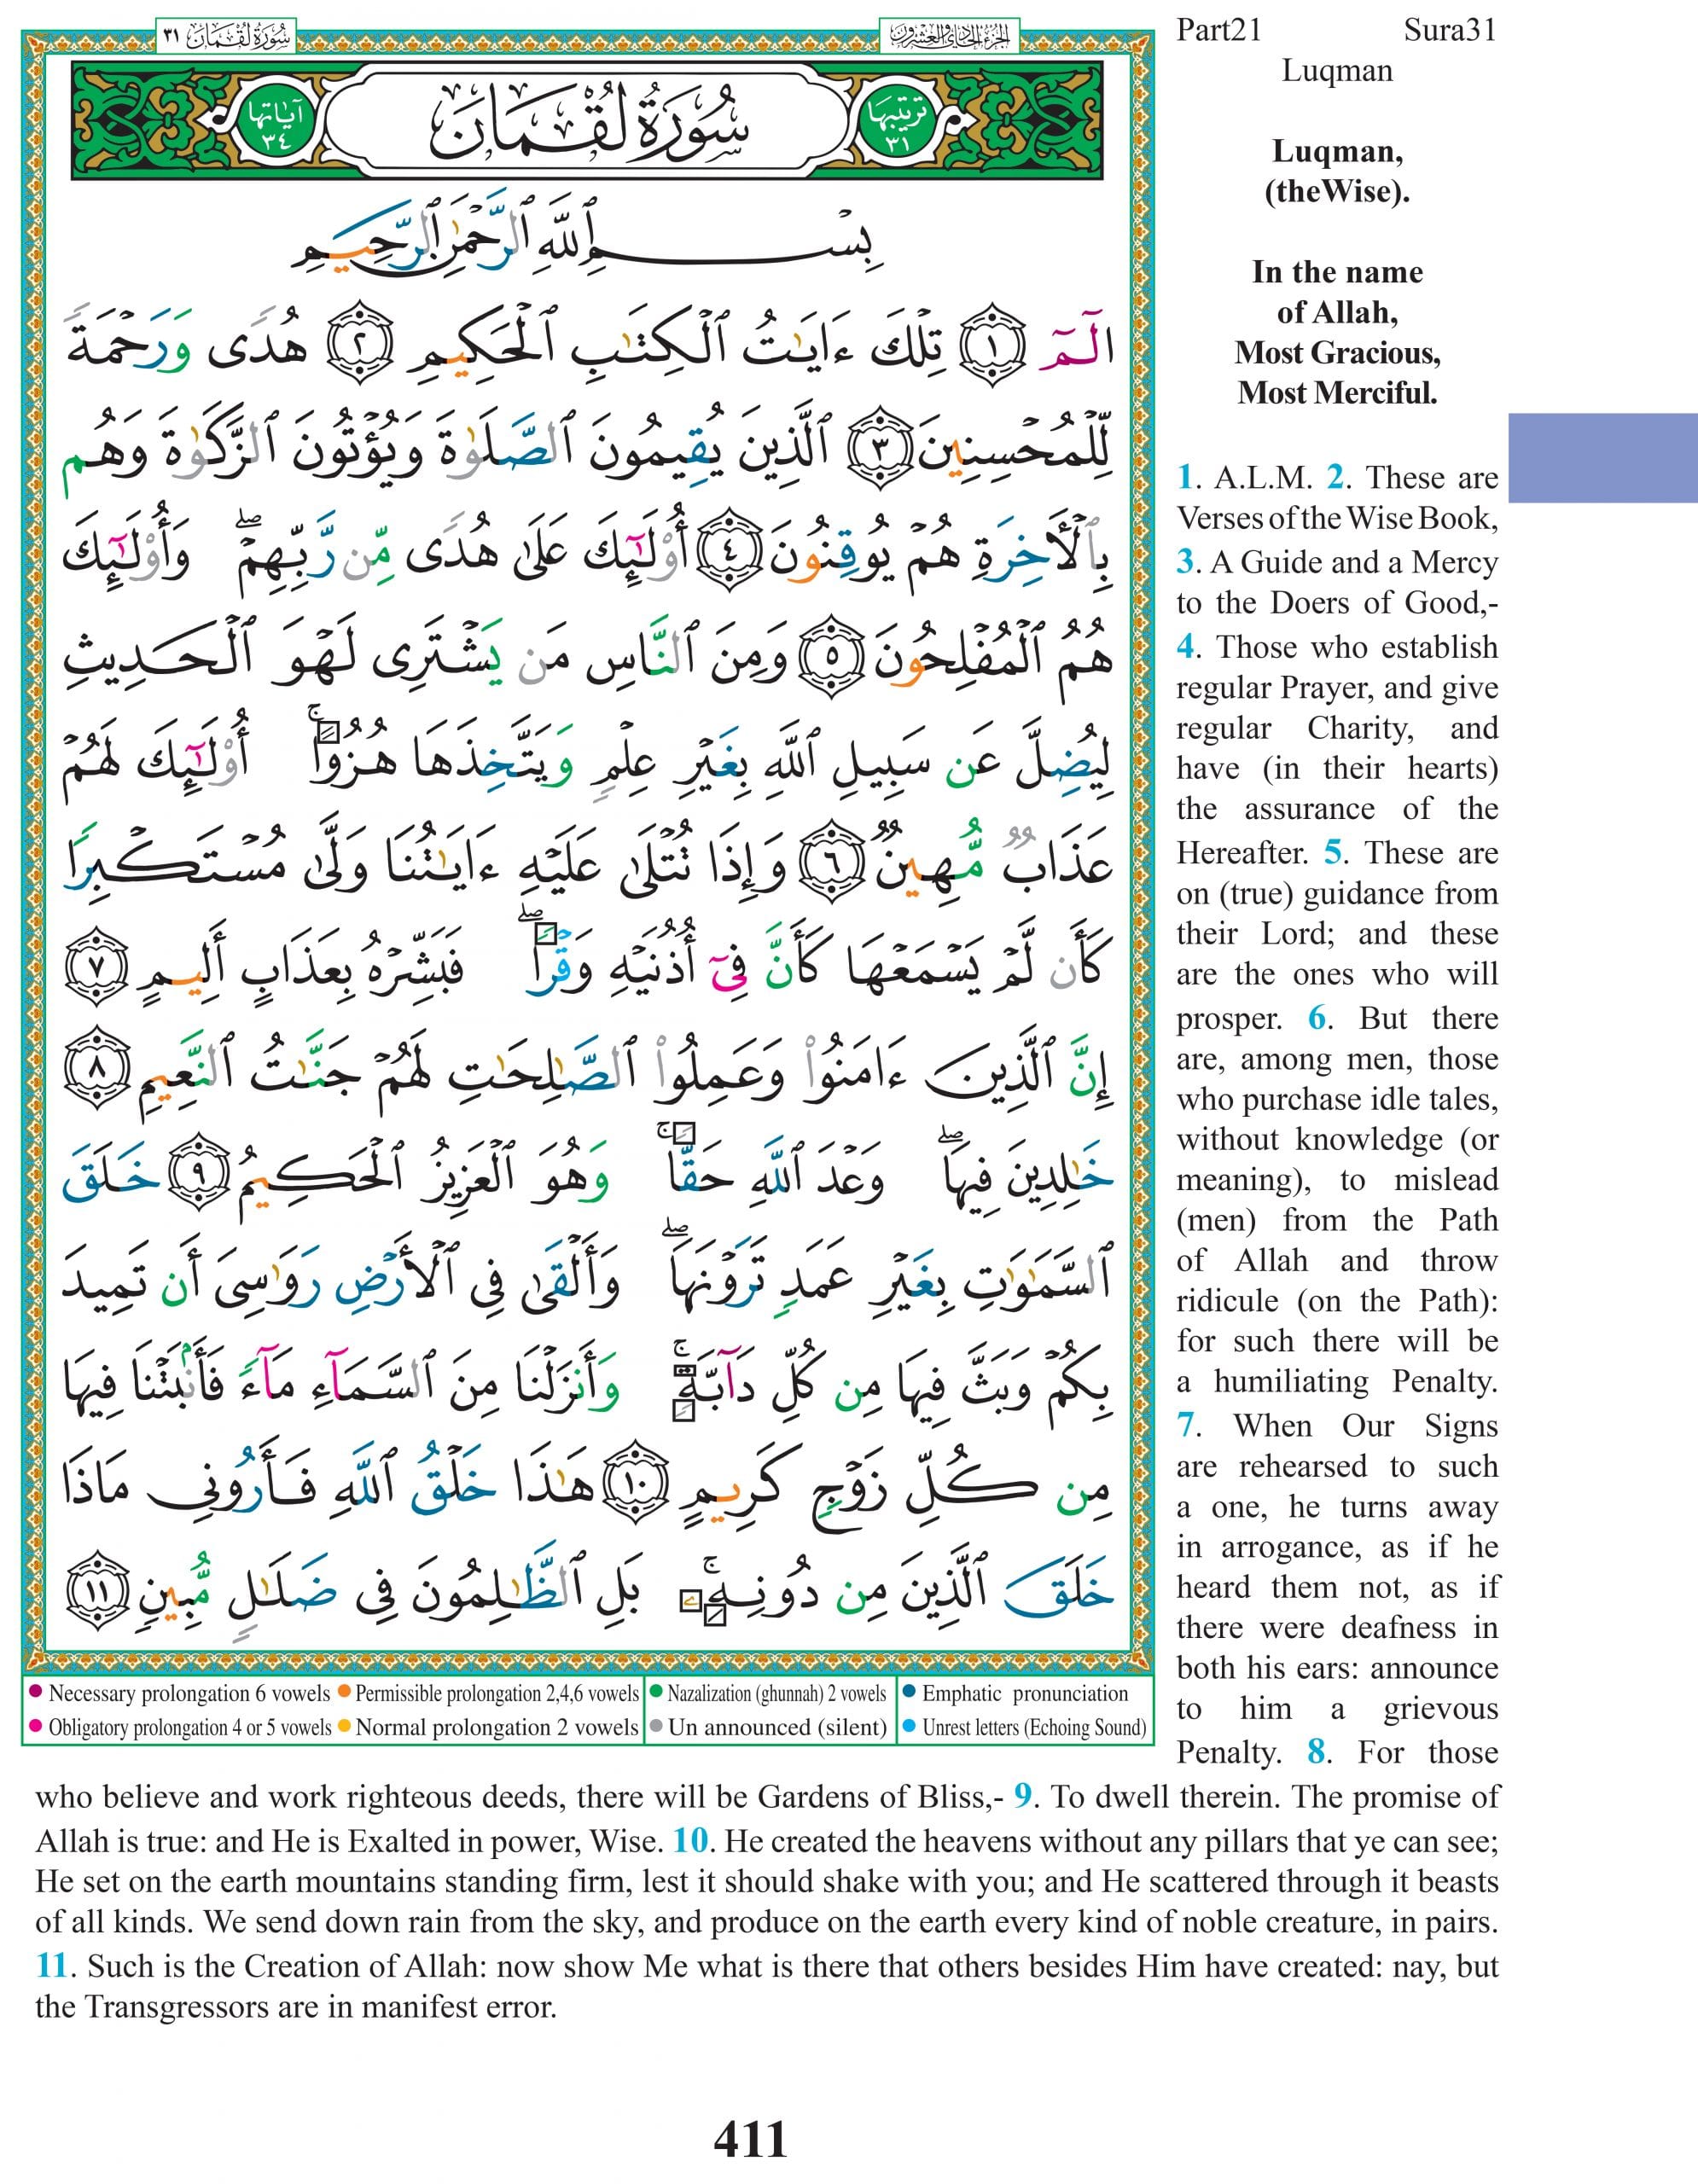 سُورَةُ لُقْمَان ٣١
الجزء الحادي والعشرون
Part21 Sura31
Luqman
آيَاتُهَا ٣٤
سُورَةُ لُقْمَانَ
تَرْتِيبُهَا ٣١
بِسْمِ ٱللَّهِ ٱلرَّحْمَٰنِ ٱلرَّحِيمِ
الٓمٓ ١ تِلْكَ ءَايَٰتُ ٱلْكِتَٰبِ ٱلْحَكِيمِ ٢ هُدًى وَرَحْمَةً
لِّلْمُحْسِنِينَ ٣ ٱلَّذِينَ يُقِيمُونَ ٱلصَّلَوٰةَ وَيُؤْتُونَ ٱلزَّكَوٰةَ وَهُم
بِٱلْأَخِرَةِ هُمْ يُوقِنُونَ ٤ أُو۟لَٰٓئِكَ عَلَىٰ هُدًى مِّن رَّبِّهِمْ ۖ وَأُو۟لَٰٓئِكَ
هُمُ ٱلْمُفْلِحُونَ ٥ وَمِنَ ٱلنَّاسِ مَن يَشْتَرِى لَهْوَ ٱلْحَدِيثِ
لِيُضِلَّ عَن سَبِيلِ ٱللَّهِ بِغَيْرِ عِلْمٍ وَيَتَّخِذَهَا هُزُوًا ۚ أُو۟لَٰٓئِكَ لَهُمْ
عَذَابٌ مُّهِينٌ ٦ وَإِذَا تُتْلَىٰ عَلَيْهِ ءَايَٰتُنَا وَلَّىٰ مُسْتَكْبِرًا
كَأَن لَّمْ يَسْمَعْهَا كَأَنَّ فِىٓ أُذُنَيْهِ وَقْرًا ۖ فَبَشِّرْهُ بِعَذَابٍ أَلِيمٍ ٧
إِنَّ ٱلَّذِينَ ءَامَنُوا۟ وَعَمِلُوا۟ ٱلصَّٰلِحَٰتِ لَهُمْ جَنَّٰتُ ٱلنَّعِيمِ ٨
خَٰلِدِينَ فِيهَا ۖ وَعْدَ ٱللَّهِ حَقًّا ۚ وَهُوَ ٱلْعَزِيزُ ٱلْحَكِيمُ ٩ خَلَقَ
ٱلسَّمَٰوَٰتِ بِغَيْرِ عَمَدٍ تَرَوْنَهَا ۖ وَأَلْقَىٰ فِى ٱلْأَرْضِ رَوَٰسِىَ أَن تَمِيدَ
بِكُمْ وَبَثَّ فِيهَا مِن كُلِّ دَآبَّةٍ ۚ وَأَنزَلْنَا مِنَ ٱلسَّمَآءِ مَآءً فَأَنۢبَتْنَا فِيهَا
مِن كُلِّ زَوْجٍ كَرِيمٍ ١٠ هَٰذَا خَلْقُ ٱللَّهِ فَأَرُونِى مَاذَا
خَلَقَ ٱلَّذِينَ مِن دُونِهِۦ ۚ بَلِ ٱلظَّٰلِمُونَ فِى ضَلَٰلٍ مُّبِينٍ ١١
Necessary prolongation 6 vowels Permissible prolongation 2,4,6 vowels Nazalization (ghunnah) 2 vowels Emphatic pronunciation
Obligatory prolongation 4 or 5 vowels Normal prolongation 2 vowels Un announced (silent) Unrest letters (Echoing Sound)
Luqman,
(theWise).
In the name
of Allah,
Most Gracious,
Most Merciful.
1. A.L.M. 2. These are
Verses of the Wise Book,
3. A Guide and a Mercy
to the Doers of Good,-
4. Those who establish
regular Prayer, and give
regular Charity, and
have (in their hearts)
the assurance of the
Hereafter. 5. These are
on (true) guidance from
their Lord; and these
are the ones who will
prosper. 6. But there
are, among men, those
who purchase idle tales,
without knowledge (or
meaning), to mislead
(men) from the Path
of Allah and throw
ridicule (on the Path):
for such there will be
a humiliating Penalty.
7. When Our Signs
are rehearsed to such
a one, he turns away
in arrogance, as if he
heard them not, as if
there were deafness in
both his ears: announce
to him a grievous
Penalty. 8. For those
who believe and work righteous deeds, there will be Gardens of Bliss,- 9. To dwell therein. The promise of
Allah is true: and He is Exalted in power, Wise. 10. He created the heavens without any pillars that ye can see;
He set on the earth mountains standing firm, lest it should shake with you; and He scattered through it beasts
of all kinds. We send down rain from the sky, and produce on the earth every kind of noble creature, in pairs.
11. Such is the Creation of Allah: now show Me what is there that others besides Him have created: nay, but
the Transgressors are in manifest error.
411